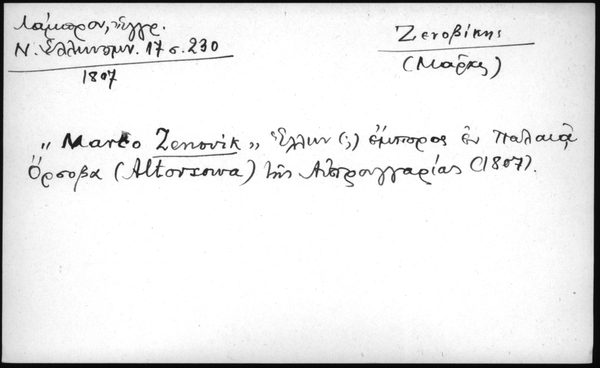 Λάμπρου, Ἔγγρ.
Ν. Ἑλληνομν. 17 σ. 230
1807
Ζενοβίκης
(Μᾶρκος)
„ Marco Zenovik „ Ἕλλην (;) ἔμπορος ἐν Παλαιᾷ
Ὀρσοβα (Altorsowa) τῆς Αὐστροουγγαρίας (1807).